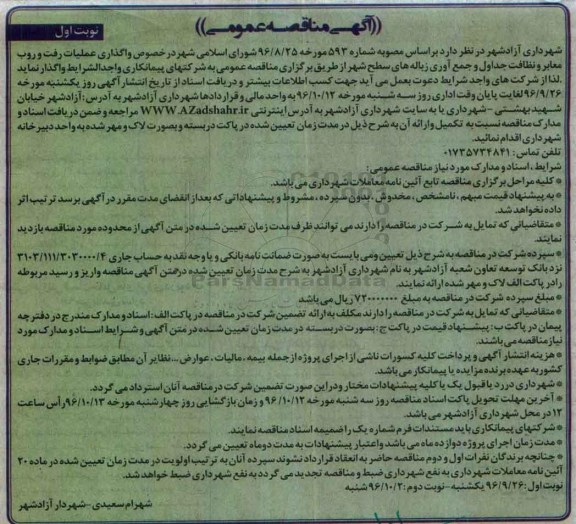 نوبت اول
((آگهی مناقصه عمومی))
شهرداری آزادشهر در نظر دارد براساس مصوبه شماره ۵۹۳ مورخه ۹۶/۸/۲۵ شورای اسلامی شهر در خصوص واگذاری عملیات رفت و روب
معابر و نظافت جداول و جمع آوری زباله های سطح شهر از طریق برگزاری مناقصه عمومی به شرکتهای پیمانکاری واجدالشرایط واگذار نماید
.لذا از شرکت های واجد شرایط دعوت بعمل می آید جهت کسب اطلاعات بیشتر و دریافت اسناد از تاریخ انتشار آگهی روز یکشنبه مورخه
۹۶/۹/۲۶ لغایت پایان وقت اداری روز سه شنبه مورخه ۹۶/۱۰/۱۲ به واحد مالی و قراردادها شهرداری آزادشهر به آدرس:آزادشهر خیابان
شهید بهشتی -شهرداری یا به سایت شهرداری آزادشهر به آدرس اینترنتی WWW.AZadshahr.ir مراجعه و ضمن دریافت اسناد و
مدارک مناقصه نسبت به تکمیل و ارائه آن به شرح ذیل در مدت زمان تعیین شده در پاکت دربسته و بصورت لاک و مهر شده به واحد دبیرخانه
شهرداری اقدام نمائید.
تلفن تماس: ۰۱۷۳۵۷۳۴۸۴۱
شرایط ، اسناد و مدارک مورد نیاز مناقصه عمومی:
*کلیه مراحل برگزاری مناقصه تابع آئین نامه معاملات شهرداری می باشد.
*به پیشنهاد قیمت مبهم ، نامشخص، مخدوش ، بدون سپرده ، مشروط و پیشنهاداتی که بعداز انقضای مدت مقرر در آگهی برسد ترتیب اثر
داده نخواهد شد.
*متقاضیانی که تمایل به شرکت در مناقصه را دارند می توانند ظرف مدت زمان تعیین شده در متن آگهی از محدوده مورد مناقصه بازدید
نمایند.
*سپرده شرکت در مناقصه به شرح ذیل تعیین ومی بایست به صورت ضمانت نامه بانکی و یا وجه نقد به حساب جاری ۳۱۰۳/۱۱۱/۳۰۳۰۰۰۰/۴
نزد بانک توسعه تعاون شعبه آزادشهر به نام شهرداری آزادشهر به شرح مدت زمان تعیین شده درمتن آگهی مناقصه واریز و رسید مربوطه
را در پاکت الف لاک و مهر شده ارائه نمایند.
*مبلغ سپرده شرکت در مناقصه به مبلغ ۷۲۰۰۰۰۰۰۰ ریال می باشد
*متقاضیانی که تمایل به شرکت در مناقصه را دارند مکلف به ارائه تضمین شرکت در مناقصه در پاکت الف:اسناد و مدارک مندرج در دفترچه
پیمان در پاکت ب: پیشنهاد قیمت در پاکت ج: بصورت دربسته در مدت زمان تعیین شده در متن آگهی و شرایط اسناد و مدارک مورد
نیاز مناقصه می باشند.
*هزینه انتشار آگهی و پرداخت کلیه کسورات ناشی از اجرای پروژه از جمله بیمه ، مالیات ، عوارض ...نظایر آن مطابق ضوابط و مقررات جاری
کشور به عهده برنده مزایده یا پیمانکار می باشد.
*شهرداری در رد یا قبول یک یا کلیه پیشنهادات مختار و دراین صورت تضمین شرکت در مناقصه آنان استرداد می گردد.
*آخرین مهلت تحویل پاکت اسناد مناقصه روز سه شنبه مورخه ۹۶/۱۰/۱۲ و زمان بازگشایی روز چهارشنبه مورخه ۹۶/۱۰/۱۳ رأس ساعت
۱۲ در محل شهرداری آزادشهر می باشد.
*شرکتهای پیمانکاری باید مستندات فرم شماره یک را ضمیمه اسناد مناقصه نمایند.
*مدت زمان اجرای پروژه دوازده ماه می باشد و اعتبار پیشنهادات به مدت دوماه تعیین می گردد.
*چنانچه برندگان نفرات اول و دوم مناقصه حاضر به انعقاد قرارداد نشوند سپرده آنان به ترتیب اولویت در مدت زمان تعیین شده در ماده ۲۰
آئین نامه معاملات شهرداری به نفع شهرداری ضبط و مناقصه تجدید می گردد به نفع شهرداری ضبط خواهد شد.
نوبت اول:۹۶/۹/۲۶ یکشنبه-نوبت دوم:۹۶/۱۰/۲ شنبه
شهرام سعیدی-شهردار آزادشهر
ParsNamadData